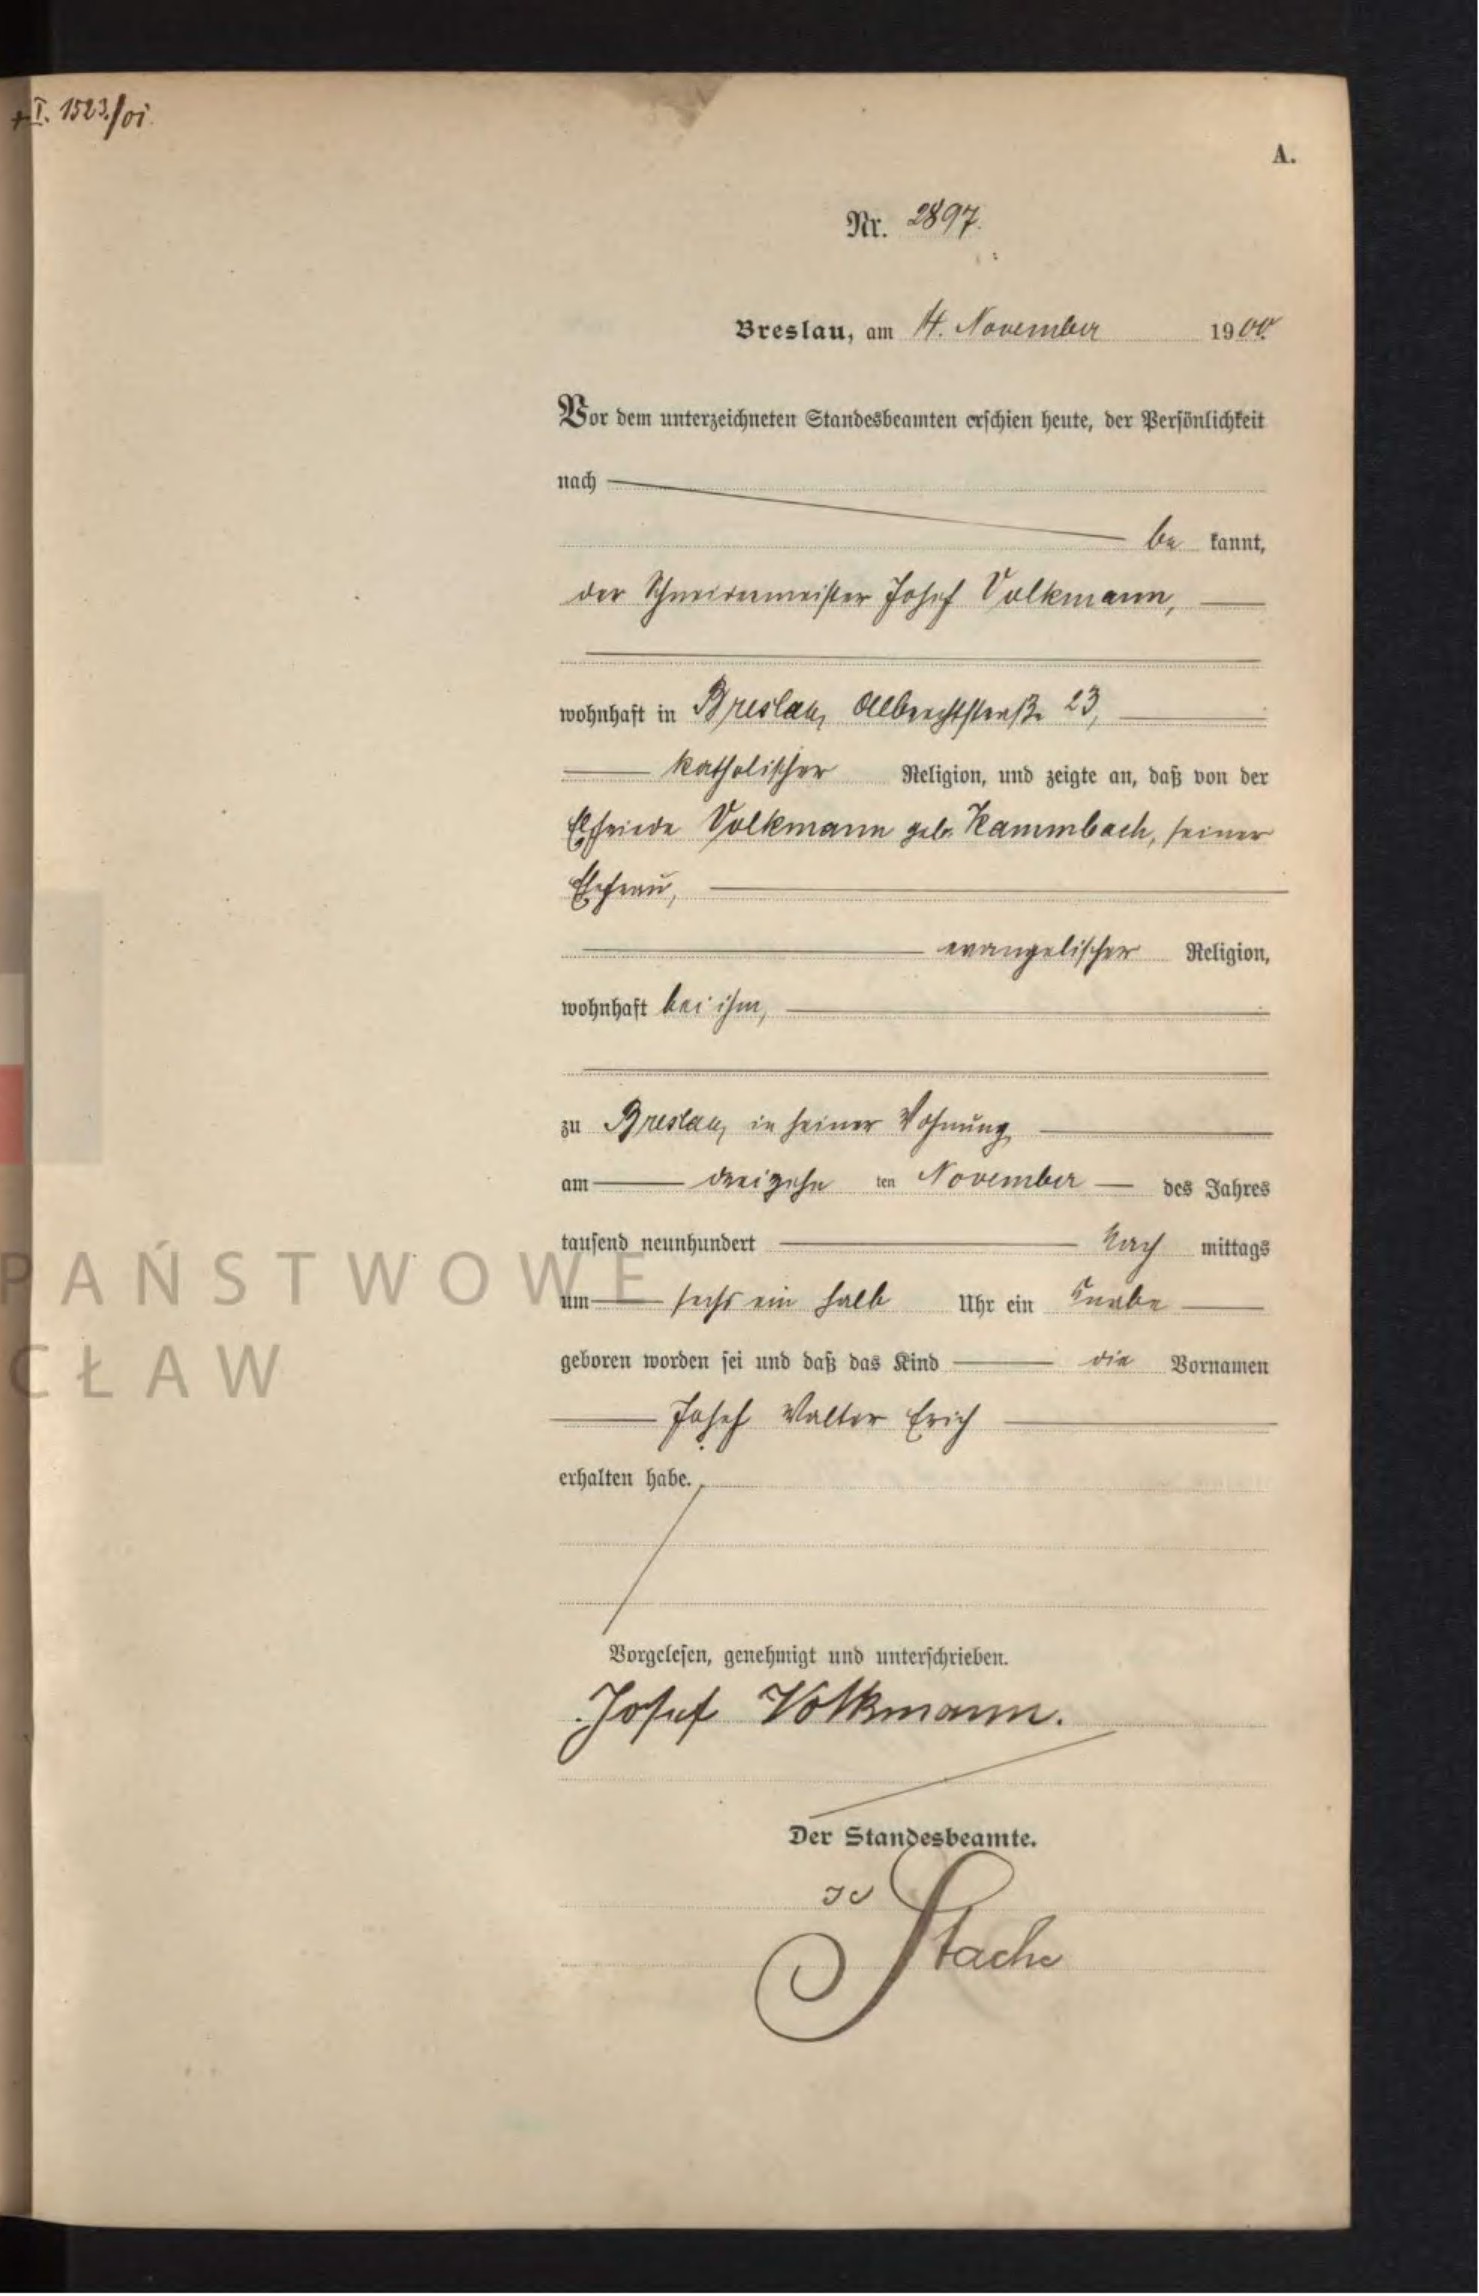 + I. 1523/01.
A.
Nr. 2897.
Breslau, am 14. November 1900.
Vor dem unterzeichneten Standesbeamten erschien heute, der Persönlichkeit
nach
be kannt,
der Schneidermeister Josef Volkmann,
wohnhaft in Breslau, Albrechtstraße 23,
katholischer Religion, und zeigte an, daß von der
Elfriede Volkmann geb. Kammbach, seiner
Ehefrau,
evangelischer Religion,
wohnhaft bei ihm,
zu Breslau, in seiner Wohnung
am dreizehn ten November des Jahres
tausend neunhundert Nach mittags
um sechs ein halb Uhr ein Knabe
geboren worden sei und daß das Kind die Vornamen
Josef Walter Erich
erhalten habe.
Vorgelesen, genehmigt und unterschrieben.
Josef Volkmann.
Der Standesbeamte.
Stache
PAŃSTWOWE
CŁAW